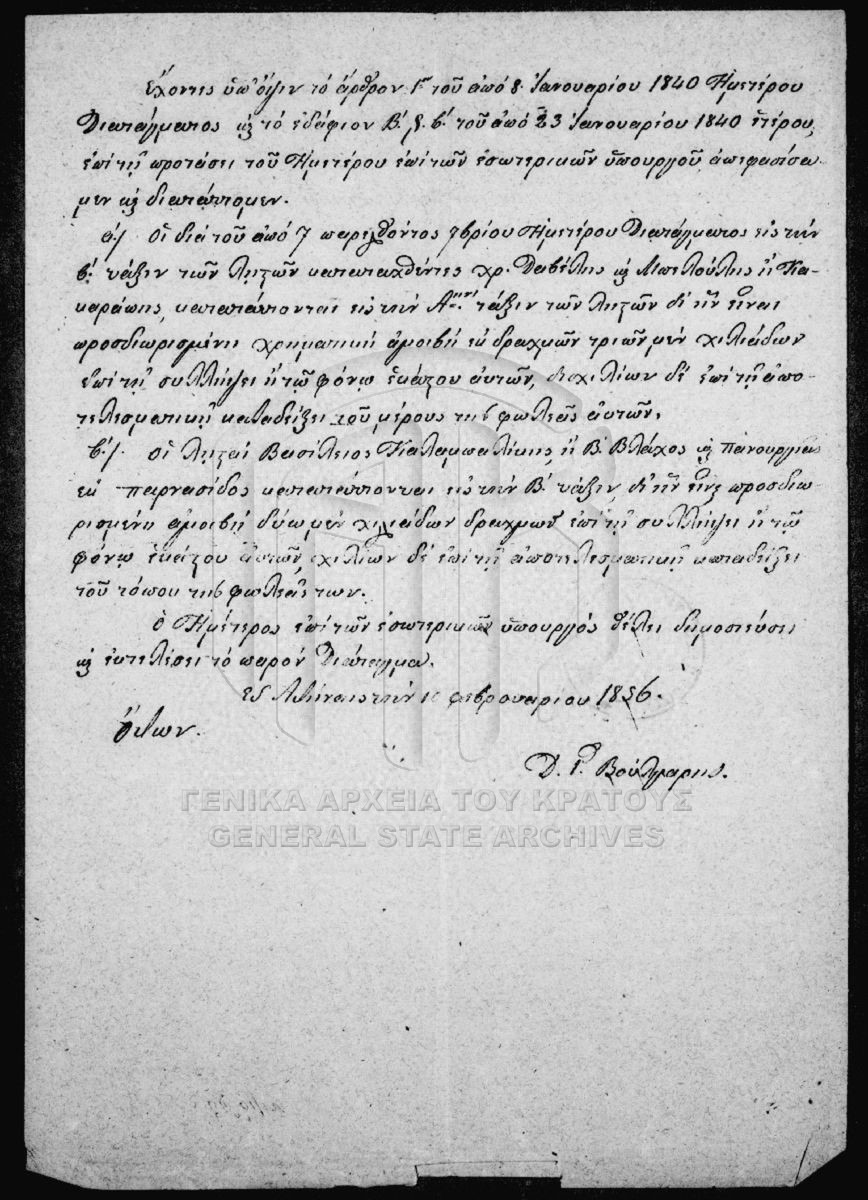 Ἔχοντες ὑπ' ὄψιν τὸ ἄρθρον 1ον τοῦ ἀπὸ 8 Ἰανουαρίου 1840 Ἡμετέρου
Διατάγματος καὶ τὸ ἐδάφιον Β', §. β'. τοῦ ἀπὸ 23 Ἰανουαρίου 1840 ἑτέρου,
ἐπὶ τῇ προτάσει τοῦ Ἡμετέρου ἐπὶ τῶν ἐσωτερικῶν ὑπουργοῦ, ἀπεφασίσα-
μεν καὶ διατάττομεν.
ά.) Οἱ διὰ τοῦ ἀπὸ 7 παρελθόντος 7βρίου Ἡμετέρου Διατάγματος εἰς τὴν
β'. τάξιν τῶν λῃστῶν καταταχθέντες χρ. Δαβέλης καὶ Μπελούλης ἢ Κα-
καράπης, κατατάττονται εἰς τὴν Α'ην τάξιν τῶν λῃστῶν δι' ἣν εἶναι
προσδιωρισμένη χρηματικὴ ἀμοιβὴ ἐκ δραχμῶν τριῶν μὲν χιλιάδων
ἐπὶ τῇ συλλήψει ἢ τῷ φόνῳ ἑκάστου αὐτῶν, δισχιλίων δὲ ἐπὶ τῇ ἀπο-
τελεσματικῇ καταδείξει τοῦ μέρους τῆς φωλεᾶς αὐτῶν.
β'.) Οἱ λῃσταὶ Βασίλειος Καλαμπαλίκης, ἢ Β. Βλάχος καὶ Πανουργιᾶς
ἐκ Παρνασίδος κατατάττονται εἰς τὴν Β'. τάξιν, δι' ἣν εἶναι προσδιω-
ρισμένη ἀμοιβὴ δύω μὲν χιλιάδων δραχμῶν ἐπὶ τῇ συλλήψει ἢ τῷ
φόνῳ ἑκάστου αὐτῶν, χιλίων δὲ ἐπὶ τῇ ἀποτελεσματικῇ καταδείξει
τοῦ τόπου τῆς φωλεᾶς των.
Ὁ Ἡμέτερος ἐπὶ τῶν ἐσωτερικῶν ὑπουργὸς θέλει δημοσιεύσει
καὶ ἐκτελέσει τὸ παρὸν Διάταγμα.
Ἐν Ἀθήναις τὴν φεβρουαρίου 1856.
Ὄθων.
Δ. Γ. Βούλγαρης.
ΓΕΝΙΚΑ ΑΡΧΕΙΑ ΤΟΥ ΚΡΑΤΟΥΣ
GENERAL STATE ARCHIVES